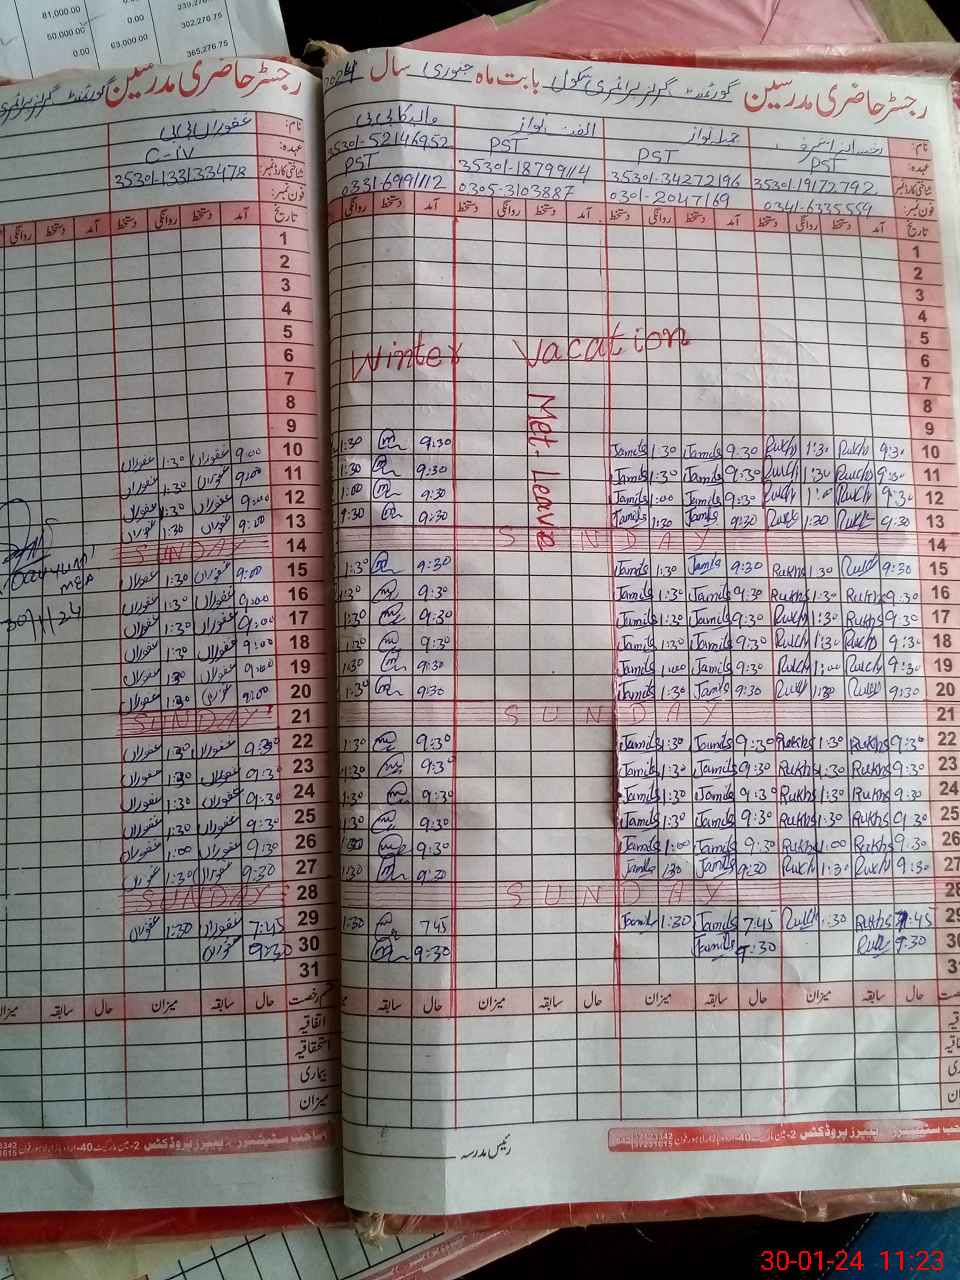 81,000.00 0.00 239,
50,000.00 0.00 302,270.75
0.00 63,000.00 365,276.75
رجسٹر حاضری مدرسین گورنمنٹ گرلز پرائمری سکول بابت ماہ جنوری سال 2024
نام: الفت نواز
عہدہ: PST PST PST PST
شناختی کارڈ نمبر: 35301-19172792 35301-34272196 35301-18799114 35301-52146952
فون نمبر: 0341-6335559 0301-2047169 0305-3103887 0331-6991112
تاریخ آمد دستخط روانگی دستخط آمد دستخط روانگی دستخط آمد دستخط روانگی دستخط آمد دستخط روانگی
1
2
3
4
5
Winter Vacation
6
7
8
Met. Leave
9
10 9:30 Rukh 1:30 Rukh 9:30 Jamils 1:30 Jamils 9:30 1:30
11 9:30 Rukh 1:30 Rukh 9:30 Jamils 1:30 Jamils 9:30 1:30
12 9:30 Rukh 1:00 Rukh 9:30 Jamils 1:00 Jamils 9:30 1:00
13 9:30 Rukh 1:30 Rukh 9:30 Jamils 1:30 Jamils 9:30
14 SUNDAY
15 9:30 Rukh 1:30 Rukhs 9:30 Jamils 1:30 Jamils 9:30 1:30
16 9:30 Rukhs 1:30 Rukhs 9:30 Jamils 1:30 Jamils 9:30 1:30
17 9:30 Rukhs 1:30 Rukh 9:30 Jamils 1:30 Jamils 9:30 1:30
18 9:30 Rukh 1:30 Rukh 9:30 Jamils 1:30 Jamils 9:30 1:30
19 9:30 Rukh 1:00 Rukh 9:30 Jamils 1:00 Jamils 9:30 1:30
20 9:30 Rukh 1:30 Rukh 9:30 Jamils 1:30 Jamils 9:30 1:30
21 SUNDAY
22 9:30 Rukhs 1:30 Rukhs 9:30 Jamils 1:30 Jamils 9:30 1:30
23 9:30 Rukhs 1:30 Rukhs 9:30 Jamils 1:30 Jamils 9:30 1:30
24 9:30 Rukhs 1:30 Rukhs 9:30 Jamils 1:30 Jamils 9:30 1:30
25 9:30 Rukhs 1:30 Rukhs 9:30 Jamils 1:30 Jamils 9:30 1:30
26 9:30 Rukhs 1:00 Rukhs 9:30 Jamils 1:00 Jamils 9:30
27 9:30 Rukh 1:30 Rukhs 9:30 Jamils 1:30 Jamils 9:30 1:30
28 SUNDAY
29 7:45 Rukhs 1:30 Rukh 7:45 Jamils 1:30 Jamil 7:45 1:30
30 9:30 Rukh 9:30 Jamils 9:30
31
حال سابقہ میزان حال سابقہ میزان حال سابقہ میزان حال سابقہ
رئیس مدرسہ
رجسٹر حاضری مدرسین گورنمنٹ گرلز پرائمری
نام: غفوراں بی بی
عہدہ: C-IV
شناختی کارڈ نمبر: 35301-133133478
فون نمبر:
تاریخ آمد دستخط روانگی دستخط آمد دستخط روانگی
1
2
3
4
5
6
7
8
9
10 9:00 غفوراں 1:30 غفوراں
11 9:00 غفوراں 1:30 غفوراں
12 9:00 غفوراں 1:30 غفوراں
13 9:00 غفوراں 1:30 غفوراں
14 SUNDAY
15 9:00 غفوراں 1:30 غفوراں
16 9:00 غفوراں 1:30 غفوراں
17 9:00 غفوراں 1:30 غفوراں
18 9:00 غفوراں 1:30 غفوراں
19 9:00 غفوراں 1:30 غفوراں
20 9:00 غفوراں 1:30 غفوراں
21 SUNDAY
22 9:30 غفوراں 1:30 غفوراں
23 9:30 غفوراں 1:30 غفوراں
24 9:30 غفوراں 1:30 غفوراں
25 9:30 غفوراں 1:30 غفوراں
26 9:30 غفوراں 1:00 غفوراں
27 9:30 غفوراں 1:30 غفوراں
28 SUNDAY
29 7:45 غفوراں 1:30 غفوراں
30 9:30 غفوراں
31
قسم رخصت حال سابقہ میزان حال سابقہ میزان
اتفاقیہ
استحقاقیہ
بیماری
میزان
MEA
30/1/24
30-01-24 11:23